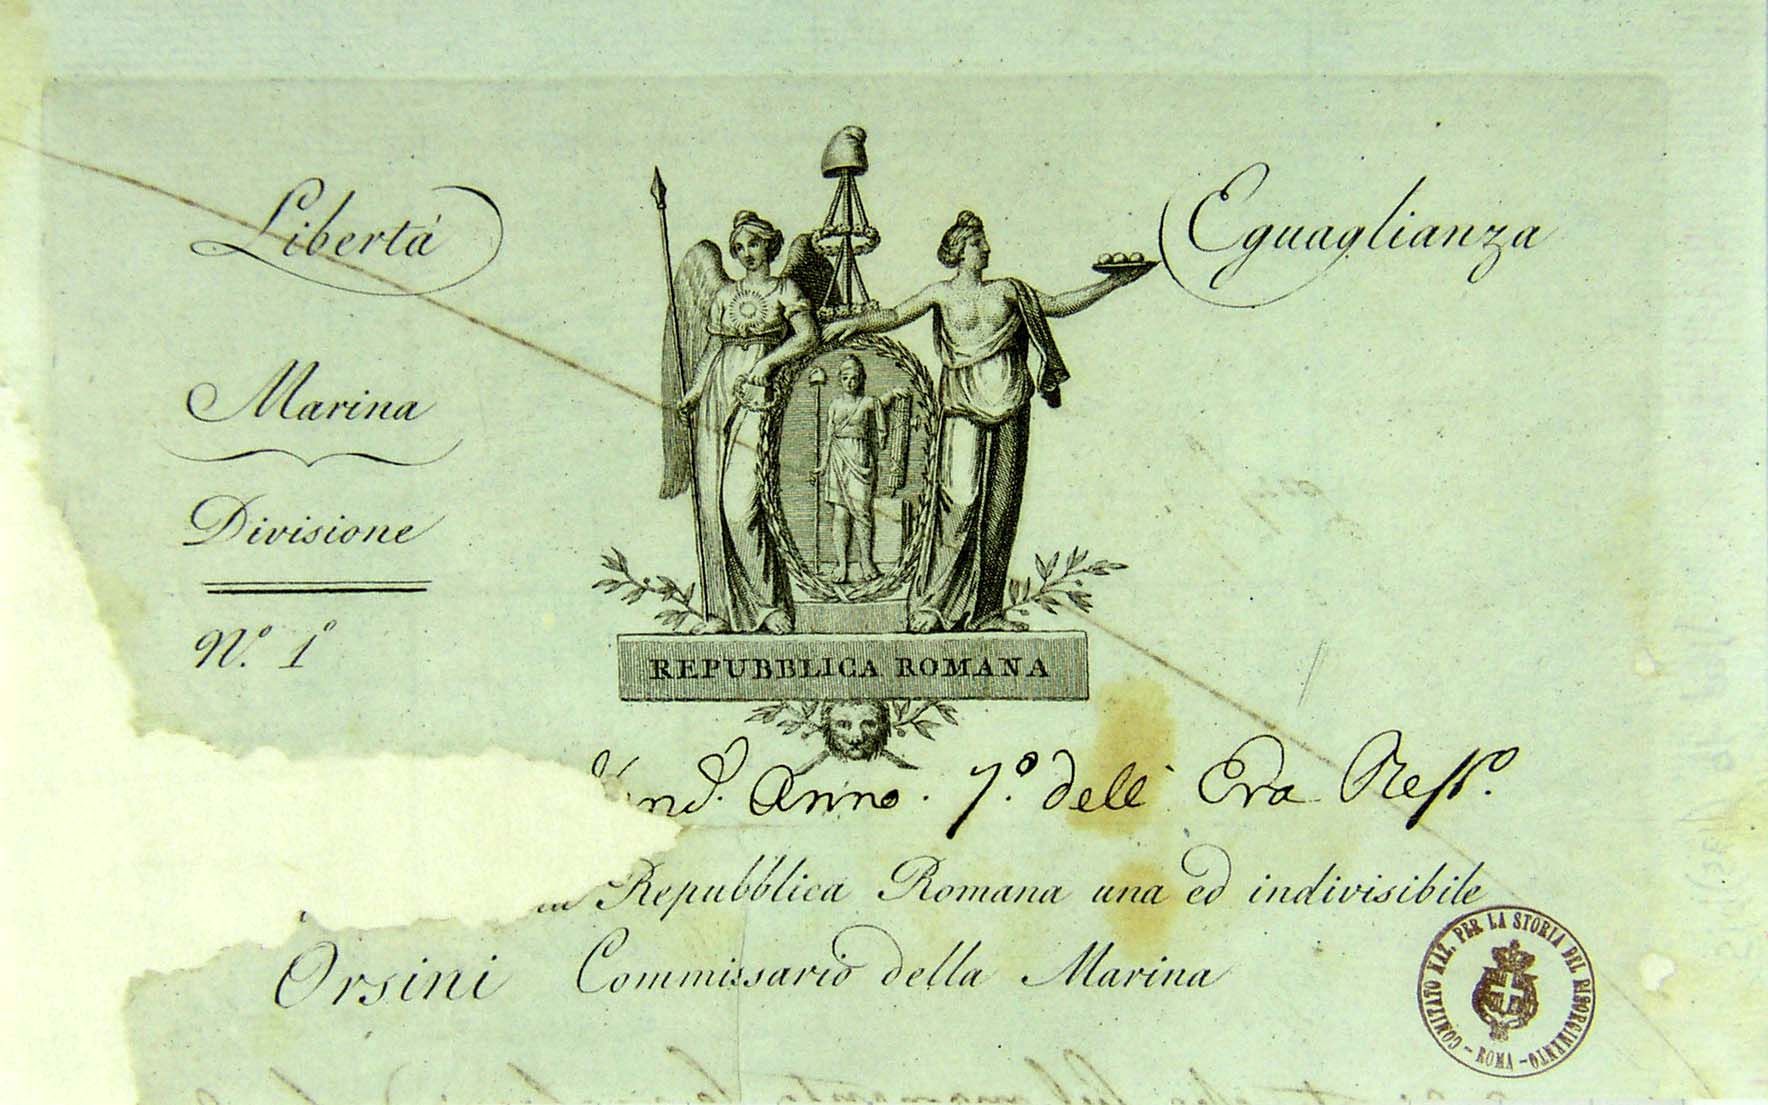 Libertà Eguaglianza
Marina
Divisione
N.º 1º
REPUBBLICA ROMANA
Anno. 7.º dell' Era
Repubblica Romana una ed indivisibile
Orsini Commissario della Marina
COMITATO NAZ. PER LA STORIA DEL RISORGIMENTO - ROMA -